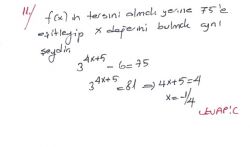 11) f(x) in tersini almak yerine 75'e
eşitleyip x değerini bulmak aynı
şeydir.
3^{4x+5} - 6 = 75
3^{4x+5} = 81 ⇒ 4x+5=4
x=-1/4
CEVAP: C